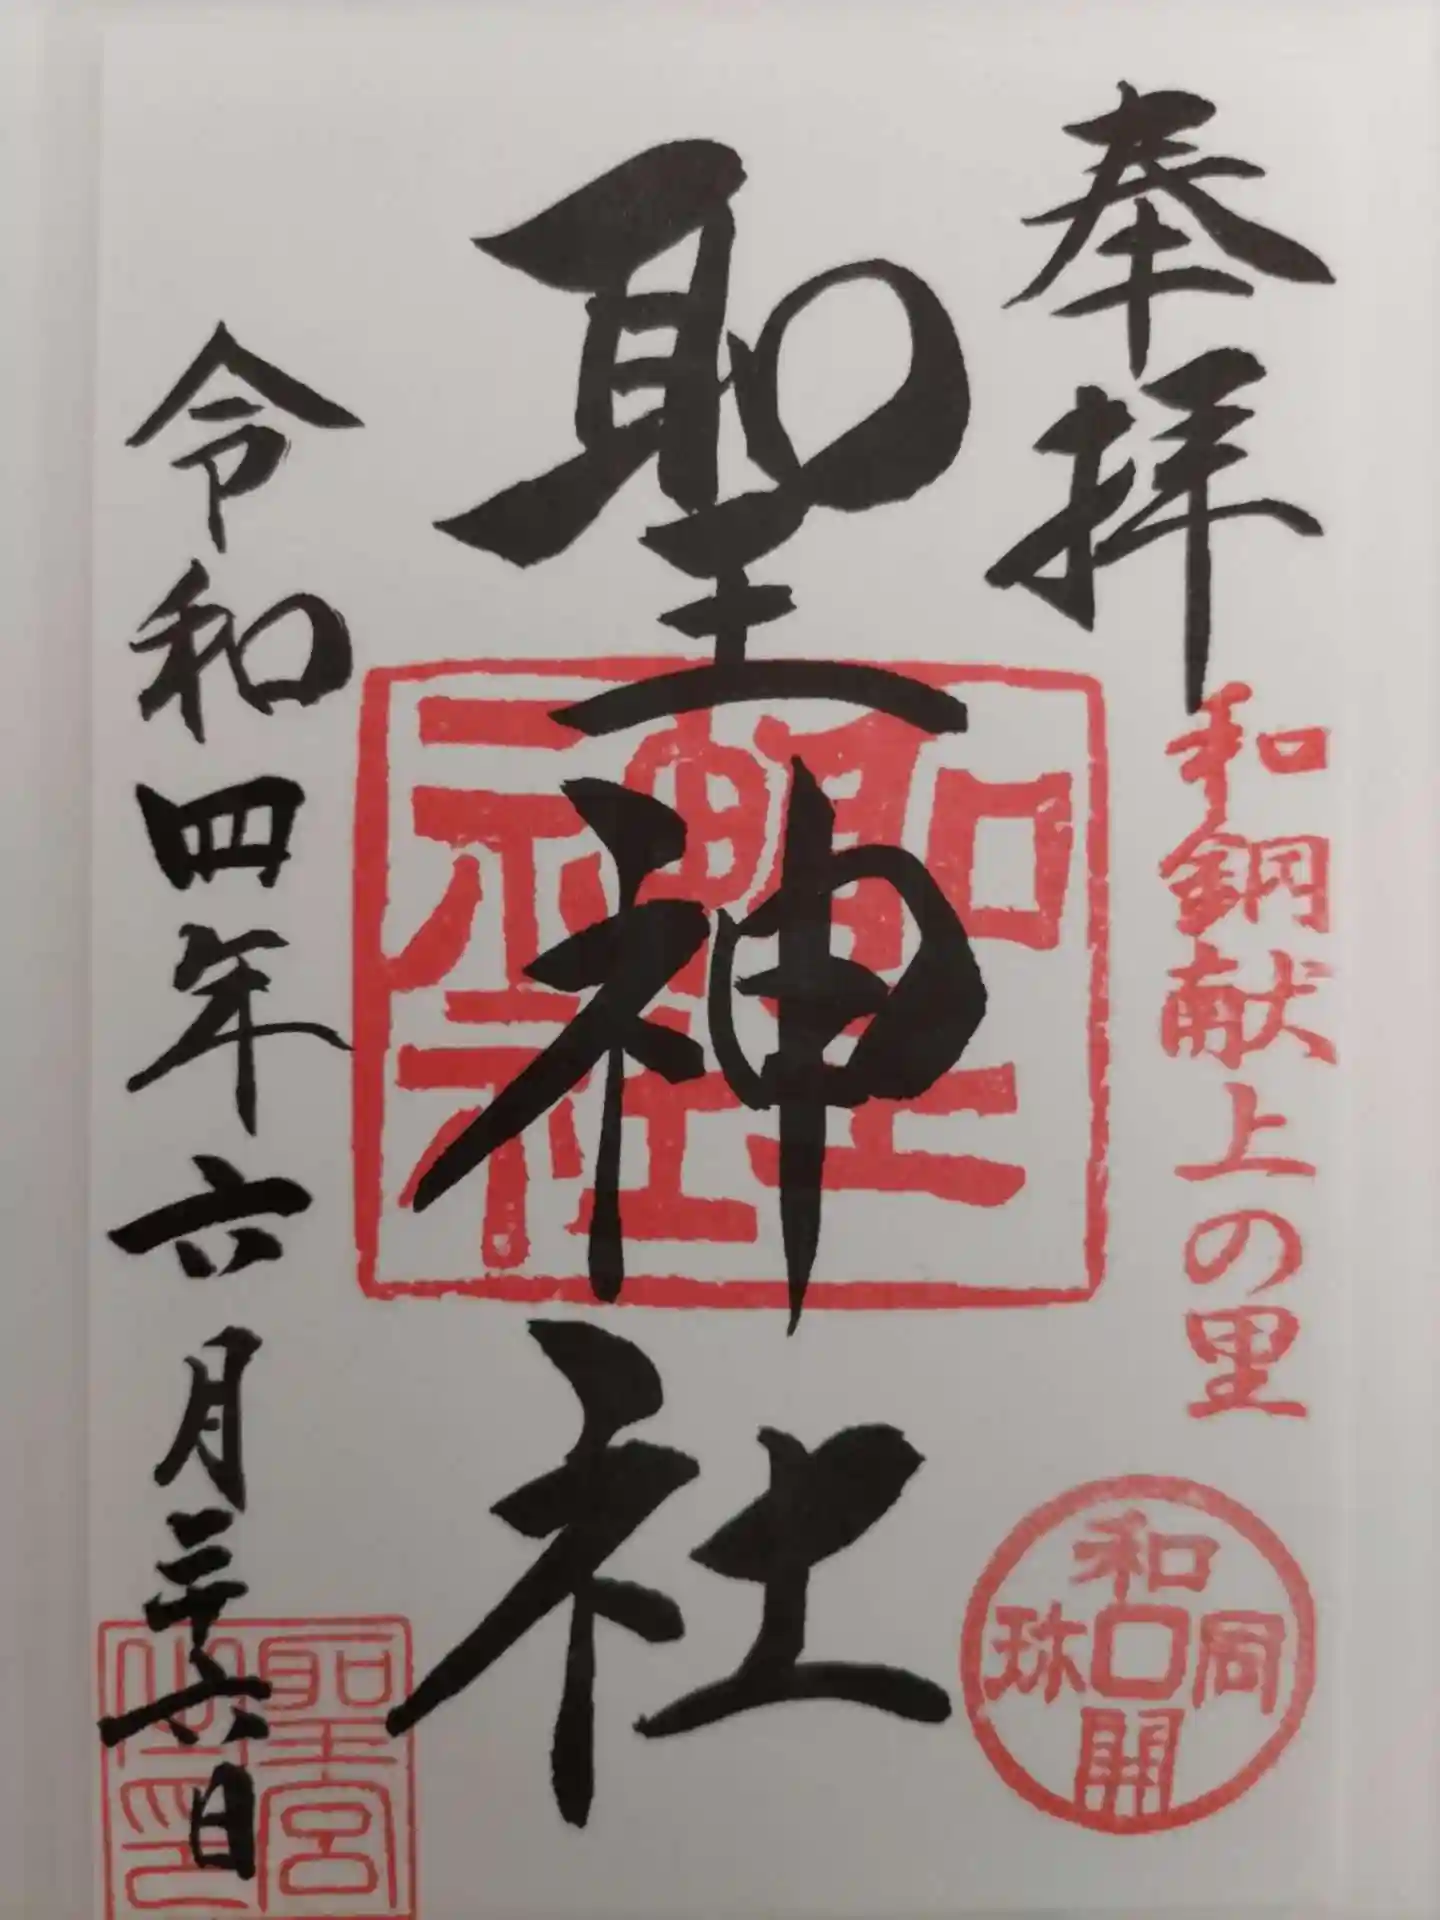 奉拝
和銅献上の里
和同開珎
聖神社
聖神社
令和四年六月二十六日
聖宮